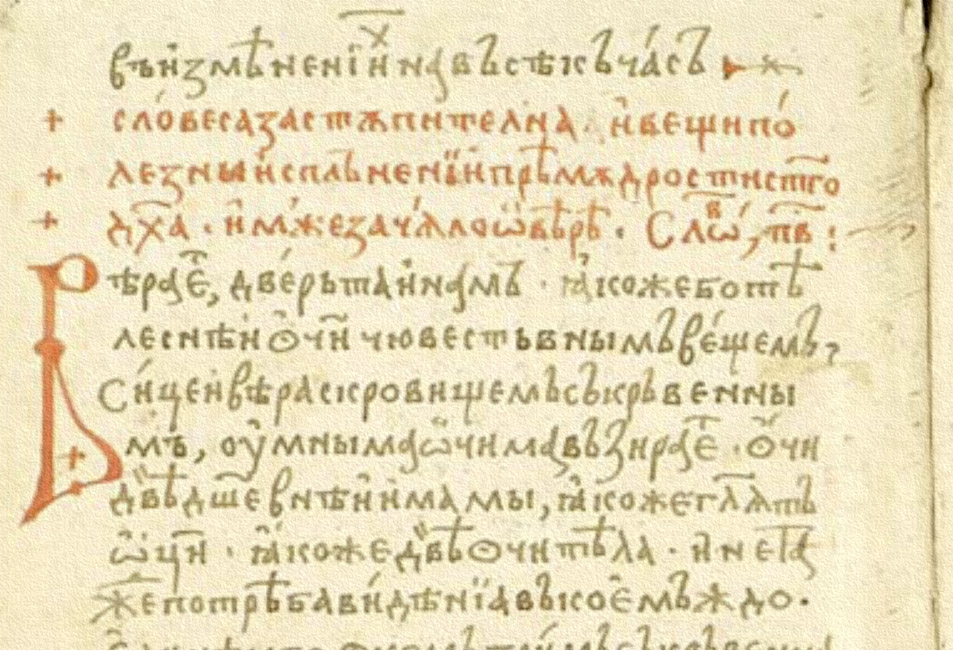 въ и҆змѣненїи҆х на в́секъ ча́съ
+ сло́веса застѫпителна. и҆ веѡи по́
+ лезны и҆ спль҆ненӹ прѣмѫдрости ст҃го
+ дх҃а · и҆мⷤже зача́ло ѡ҆ вѣрѣ · Сло̑в, пв҃ :
Вѣра е҆сⷮ, две́рь таи҆намъ · ꙗ҆коже бо тѣ
леснѣи ѻ҆чи҆ чювестьвнымъ ве́щемъ,
Си́це и҆ вѣра съкровищемь съкрьвенны
мъ, оу҆мныма ѡ҆чима въꙁираеⷮ · ѻ҆чи
двѣ дш҃евнѣи и҆мамы, ꙗ҆коже гл҃ѧтъ
ѡ҆ц҃и · ꙗ҆коже двѣ ѻчи тѣла · и҆ не та
ж҆е потрѣба ви́дѣнїа въ кое́мъждо ·